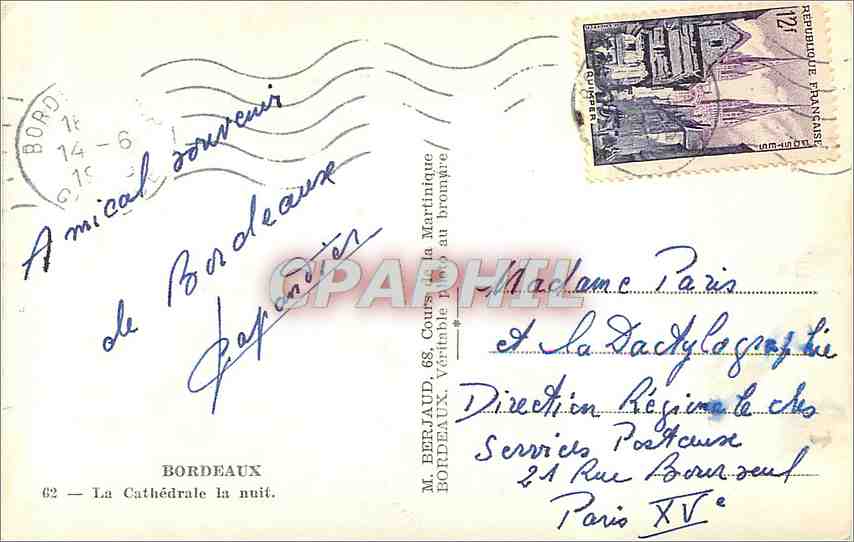 BORD
14-6
19
Amical souvenir
de Bordeaux
BORDEAUX
62 — La Cathédrale la nuit.
M. BERJAUD, 68, Cours de la Martinique
BORDEAUX. Véritable photo au bromure
12f
RÉPUBLIQUE FRANÇAISE
POSTES
QUIMPER
CPAPHIL
Madame Paris
et la Dactylographie
Direction Régionale des
Services Postaux
21 Rue Bourseul
Paris XVe